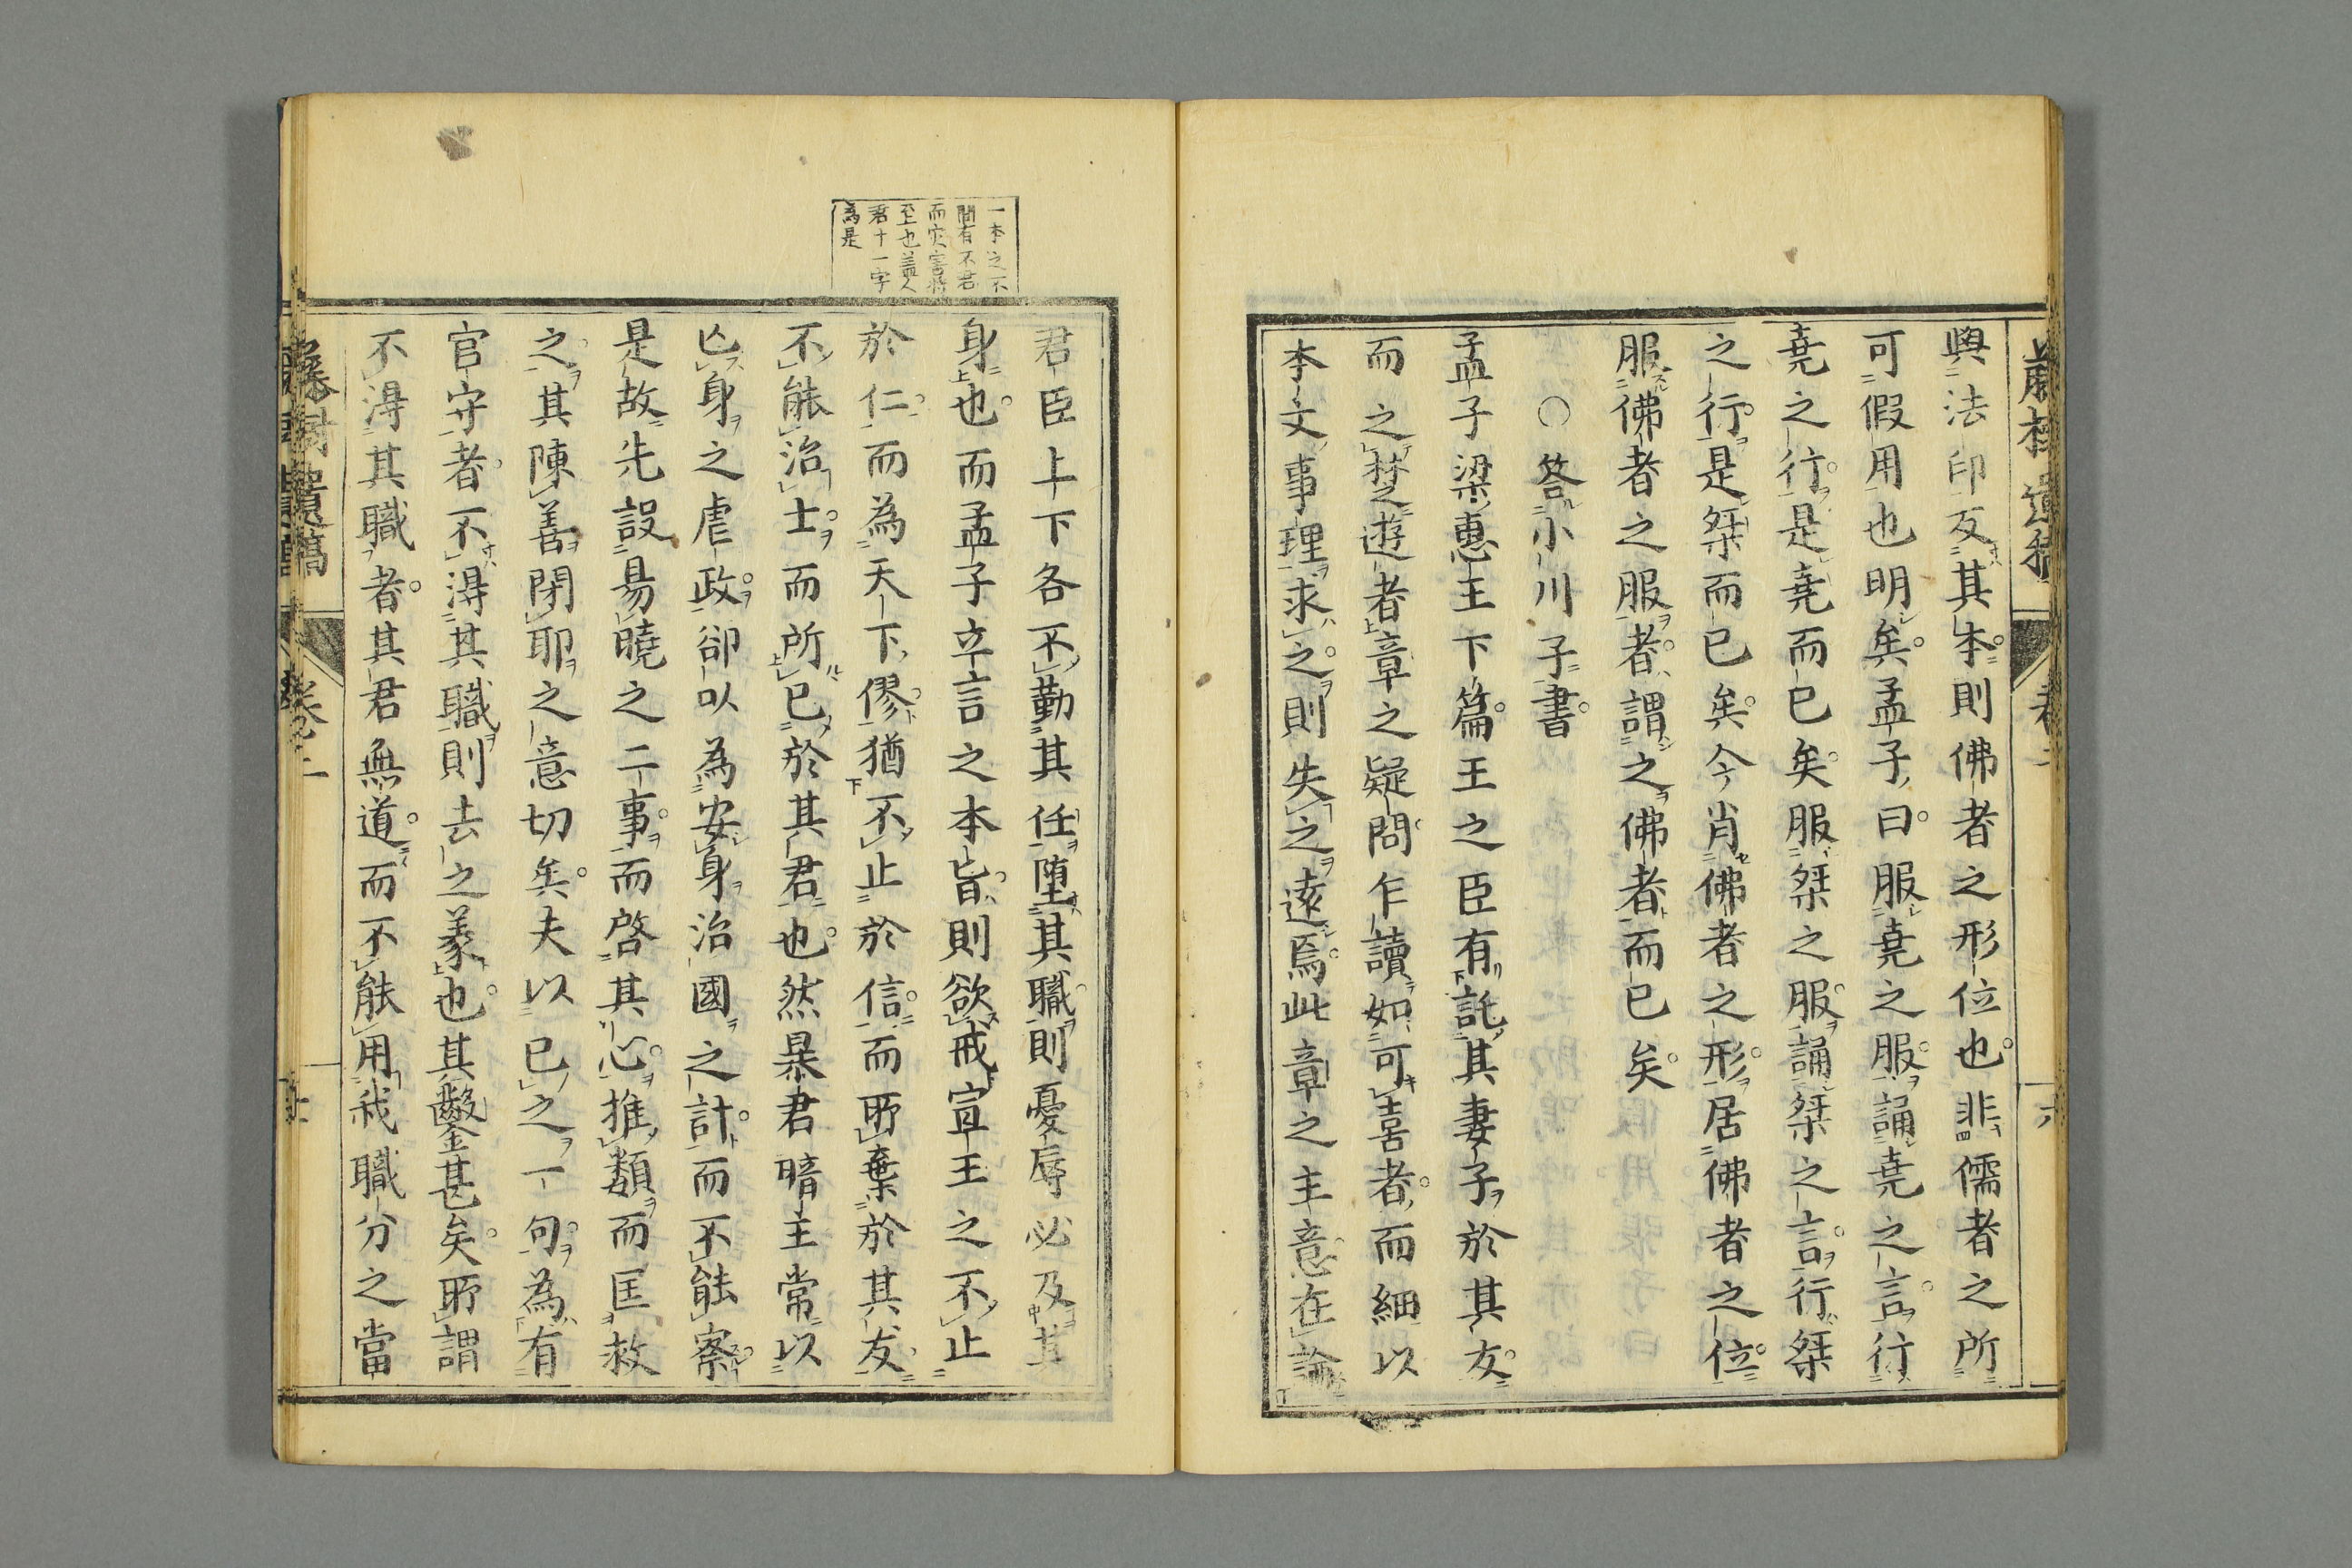 藤樹遺稿 卷二 六
與法印反其本則佛者之形位也非儒者之所
可假用也明矣孟子曰服堯之服誦堯之言行
堯之行是堯而已矣服桀之服誦桀之言行桀
之行是桀而已矣今肖佛者之形居佛者之位
服佛者之服者謂之佛者而已矣
○答小川子書
孟子梁惠王下篇王之臣有託其妻子於其友
而之楚遊者章之疑問乍讀如可喜者而細以
本文事理求之則失之遠焉此章之主意在論
一本之不
間有不君
而灾害将
至也蓋人
君十一字
為是
君臣上下各不勤其任墮其職則憂辱必及其
身也而孟子立言之本旨則欲戒宣王之不止
於仁而為天下僇猶不止於信而所棄於其友
不能治士而所已於其君也然暴君暗主常以
亾身之虐政卻以為安身治國之計而不能察
是故先設易曉之二事而啓其心推類而匡救
之其陳善閉邪之意切矣夫以已之一句為有
官守者不得其職則去之義也其鑿甚矣所謂
不得其職者其君無道而不能用我職分之當
藤樹遺稿 卷之二